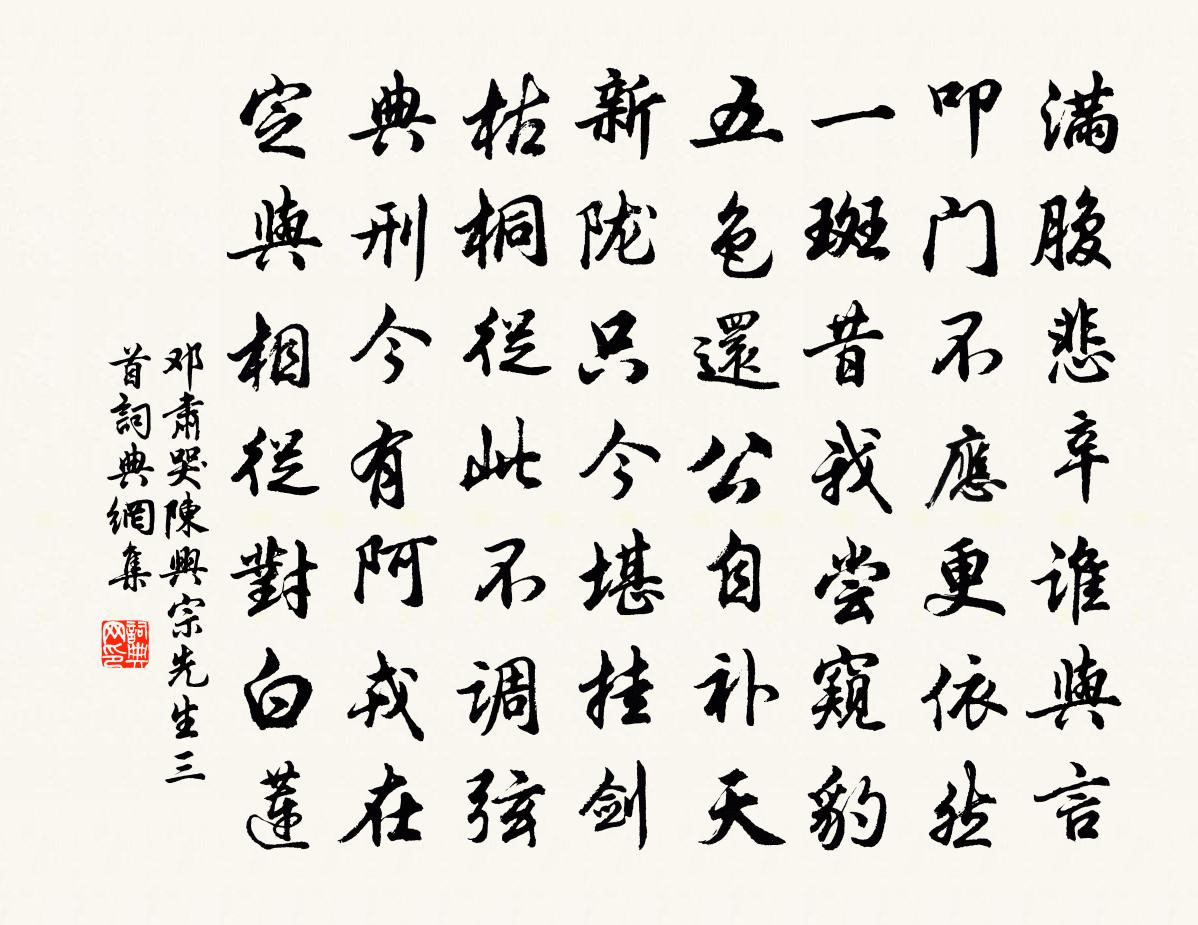 满腹悲辛谁與言
叩门不應更依然
一斑昔我尝窥豹
五色還公自补天
新陇只今堪挂剑
枯桐從此不调弦
典刑今有阿戎在
定與相從對白蓮
邓肃哭陳興宗先生三
首詞典網集
詞典
网印